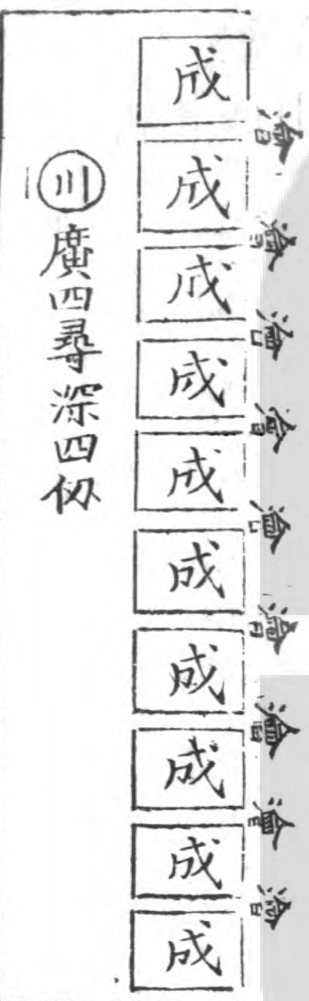 澮
澮
澮
澮
澮
澮
澮
澮
澮
成
成
成
成
成
成
成
成
成
成
川廣四尋深四仞